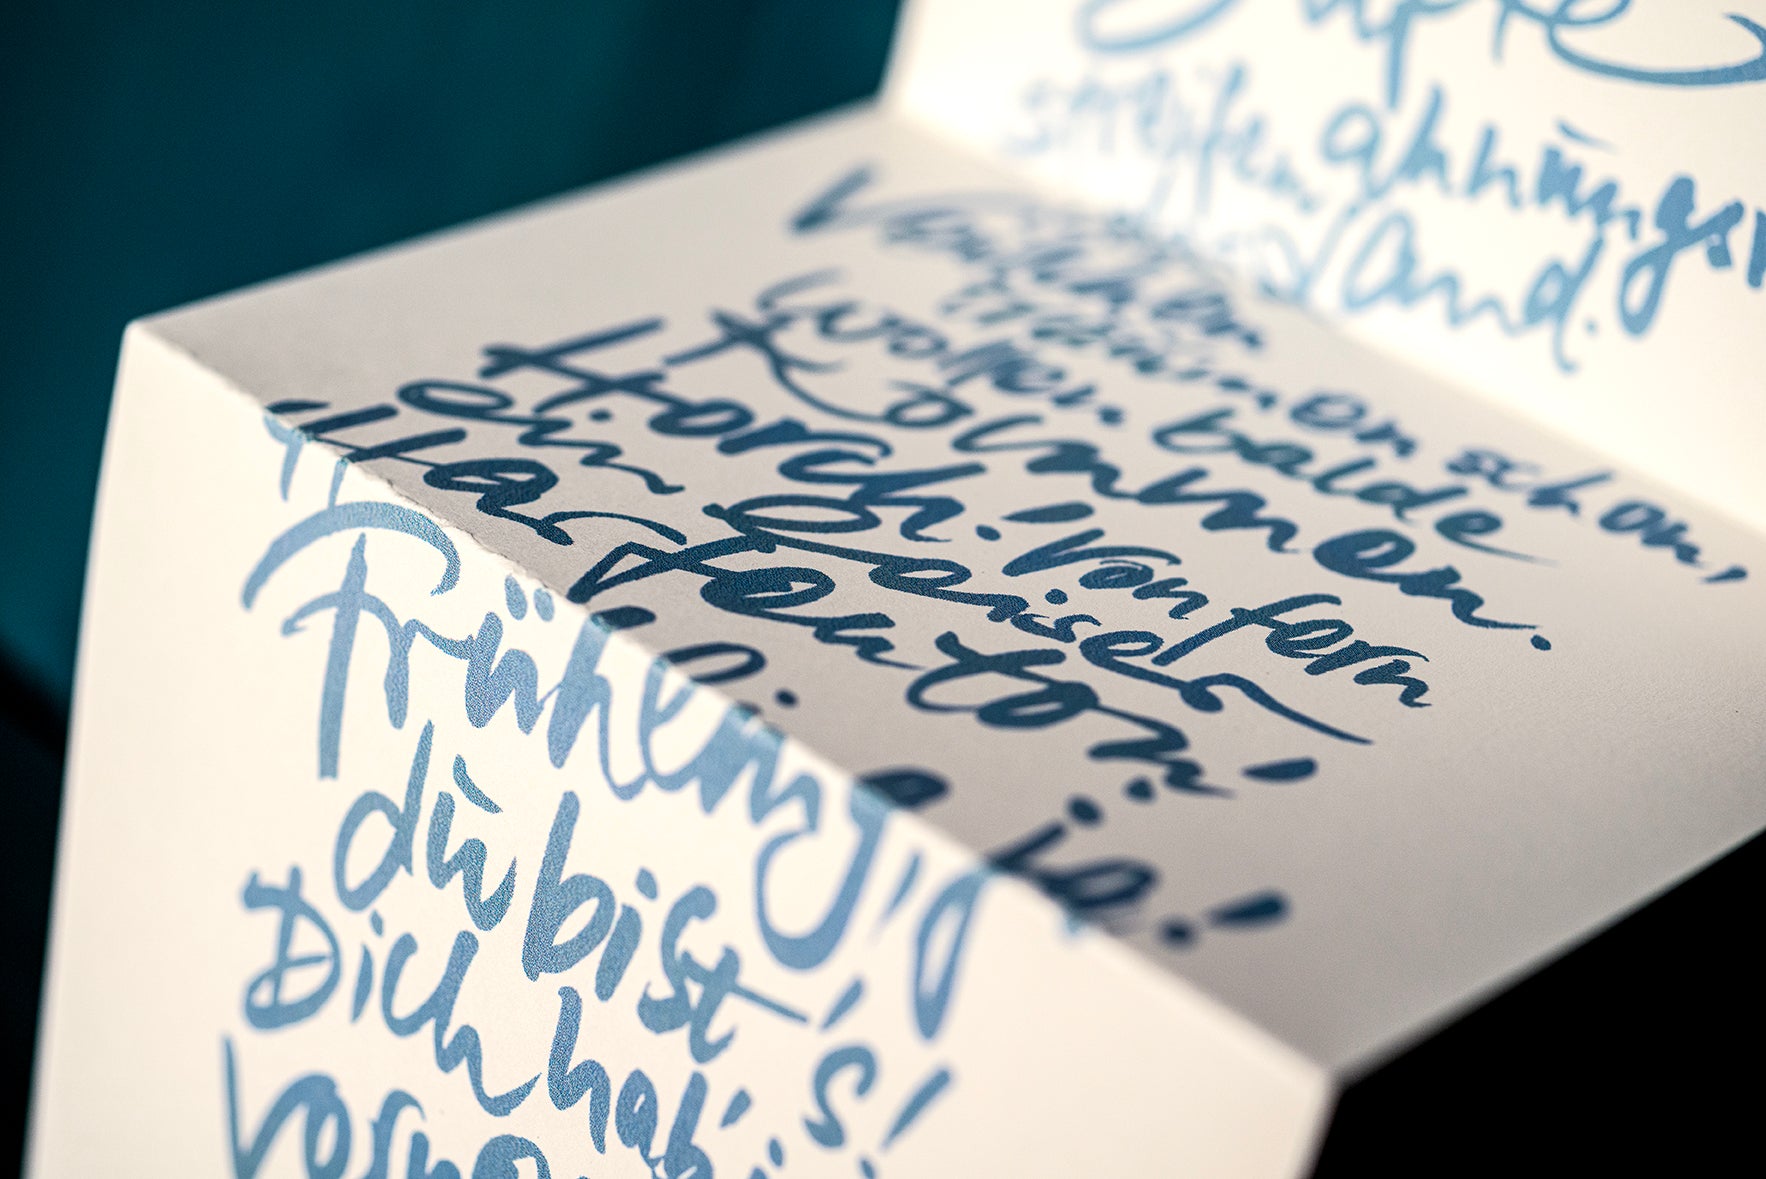 Düfte
streifen ahnungsv
Land.
Veilchen
träumen schon,
wollen balde
kommen.
Horch! Von fern
ein leiser
Harfenton!
Frühling, ja
du bist's!
Dich hab'
vern